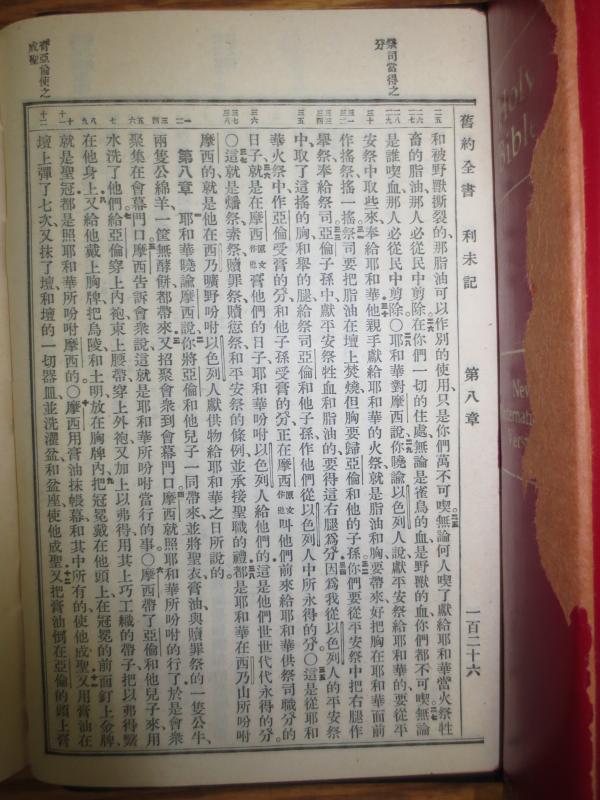 舊約全書 利未記 第八章 一百二十六
祭司當得之
分
和被野獸撕裂的那脂油可以作別的使用只是你們萬不可喫無論何人喫了獻給耶和華當火祭牲
畜的脂油那人必從民中剪除在你們一切的住處無論是雀鳥的血是野獸的血你們都不可喫無論
是誰喫血那人必從民中剪除〇耶和華對摩西說你曉諭以色列人說獻平安祭給耶和華的要從平
安祭中取些來奉給耶和華他親手獻給耶和華的火祭就是脂油和胸要帶來好把胸在耶和華面前
作搖祭搖一搖祭司要把脂油在壇上焚燒但胸要歸亞倫和他的子孫你們要從平安祭中把右腿作
舉祭奉給祭司亞倫子孫中獻平安祭牲血和脂油的要得這右腿為分因為我從以色列人的平安祭
中取了這搖的胸和舉的腿給祭司亞倫和他子孫作他們從以色列人中所永得的分〇這是從耶和
華火祭中作亞倫受膏的分和他子孫受膏的分正在摩西原文作他叫他們前來給耶和華供祭司職分的
日子就是在摩西原文作他膏他們的日子耶和華吩咐以色列人給他們的這是他們世世代代永得的分
〇這就是燔祭素祭贖罪祭贖愆祭和平安祭的條例並承接聖職的禮都是耶和華在西乃山所吩咐
摩西的就是他在西乃曠野吩咐以色列人獻供物給耶和華之日所說的
第八章 耶和華曉諭摩西說你將亞倫和他兒子一同帶來並將聖衣膏油與贖罪祭的一隻公牛、
兩隻公綿羊一筐無酵餅都帶來又招聚會衆到會幕門口摩西就照耶和華所吩咐的行了於是會衆
聚集在會幕門口摩西告訴會衆說這就是耶和華所吩咐當行的事〇摩西帶了亞倫和他兒子來用
水洗了他們給亞倫穿上內袍束上腰帶穿上外袍又加上以弗得用其上巧工織的帶子把以弗得繫
在他身上又給他戴上胸牌把烏陵和土明放在胸牌內把冠冕戴在他頭上在冠冕的前面釘上金牌
就是聖冠都是照耶和華所吩咐摩西的〇摩西用膏油抹帳幕和其中所有的使他成聖又用膏油在
壇上彈了七次又抹了壇和壇的一切器皿並洗濯盆和盆座使他成聖又把膏油倒在亞倫的頭上膏
膏亞倫使之
成聖
Holy
Bible
New
International
Version